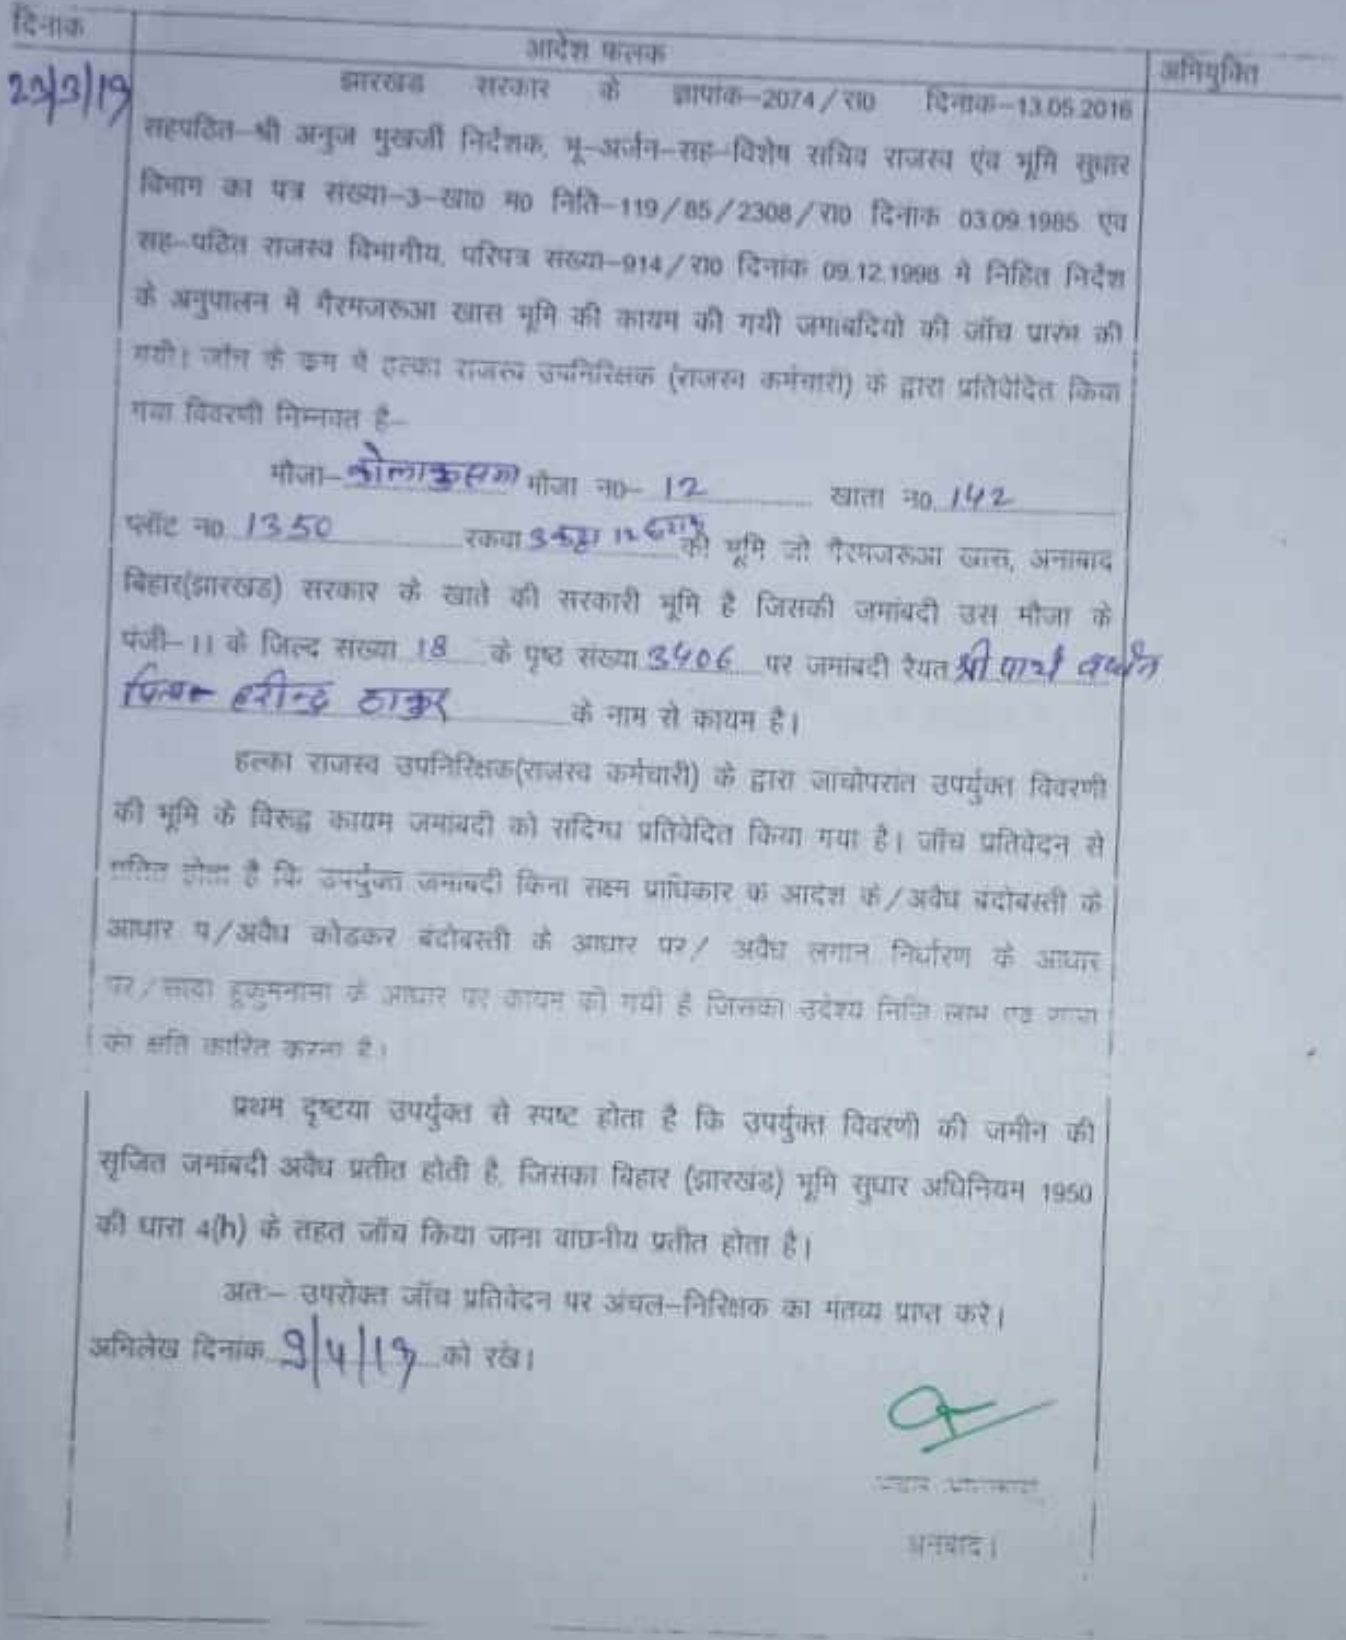 दिनांक
आदेश फलक
अभियुक्ति
झारखंड सरकार के ज्ञापांक-2074/रा0 दिनांक-13.05.2016
सहपठित-श्री अनुज मुखर्जी निर्देशक, भू-अर्जन-सह-विशेष सचिव राजस्व एंव भूमि सुधार
विभाग का पत्र संख्या-3-खा0 म0 निति-119/85/2308/रा0 दिनांक 03.09.1985 एंव
सह-पठित राजस्व विभागीय, परिपत्र संख्या-914/रा0 दिनांक 09.12.1998 मे निहित निर्देश
के अनुपालन में गैरमजरूआ खास भूमि की कायम की गयी जमाबंदियो की जॉच प्रारंभ की
गयी। जॉच के क्रम मे हल्का राजस्व उपनिरिक्षक (राजस्व कर्मचारी) के द्वारा प्रतिवेदित किया
गया विवरणी निम्नवत है-
मौजा-कोलाकुसमा मौजा न0- 12 खाता न0 142
प्लॉट न0 1350 रकवा 3 कट्ठा 12 की भूमि जो गैरमजरूआ खास, अनाबाद
बिहार(झारखंड) सरकार के खाते की सरकारी भूमि है जिसकी जमांबदी उस मौजा के
पंजी-11 के जिल्द संख्या 18 के पृष्ठ संख्या 3406 पर जमांबदी रैयत श्री पार्थ वर्धन
पिता- हरीन्द्र ठाकुर के नाम से कायम है।
हल्का राजस्व उपनिरिक्षक(राजस्व कर्मचारी) के द्वारा जाचोपरांत उपर्युक्त विवरणी
की भूमि के विरूद्ध कायम जमांबदी को संदिग्ध प्रतिवेदित किया गया है। जॉच प्रतिवेदन से
होता है कि उपर्युक्त जमाबंदी बिना सक्ष्म प्राधिकार के आदेश के/अवैध बंदोबस्ती के
आधार प/अवैध कोडकर बंदोबस्ती के आधार पर/ अवैध लगान निर्धारण के आधार
पर/सादा हुकुमनामा के आधार पर कायम की गयी है जिसका उदेश्य निजि लाभ एंव
को क्षति कारित करना है।
प्रथम दृष्टया उपर्युक्त से स्पष्ट होता है कि उपर्युक्त विवरणी की जमीन की
सृजित जमांबदी अवैध प्रतीत होती है, जिसका बिहार (झारखंड) भूमि सुधार अधिनियम 1950
की धारा 4(h) के तहत जॉच किया जाना वांछनीय प्रतीत होता है।
अतः- उपरोक्त जॉच प्रतिवेदन पर अंचल-निरिक्षक का मंतव्य प्राप्त करें।
अभिलेख दिनांक 9/4/19 को रखें।
धनबाद।